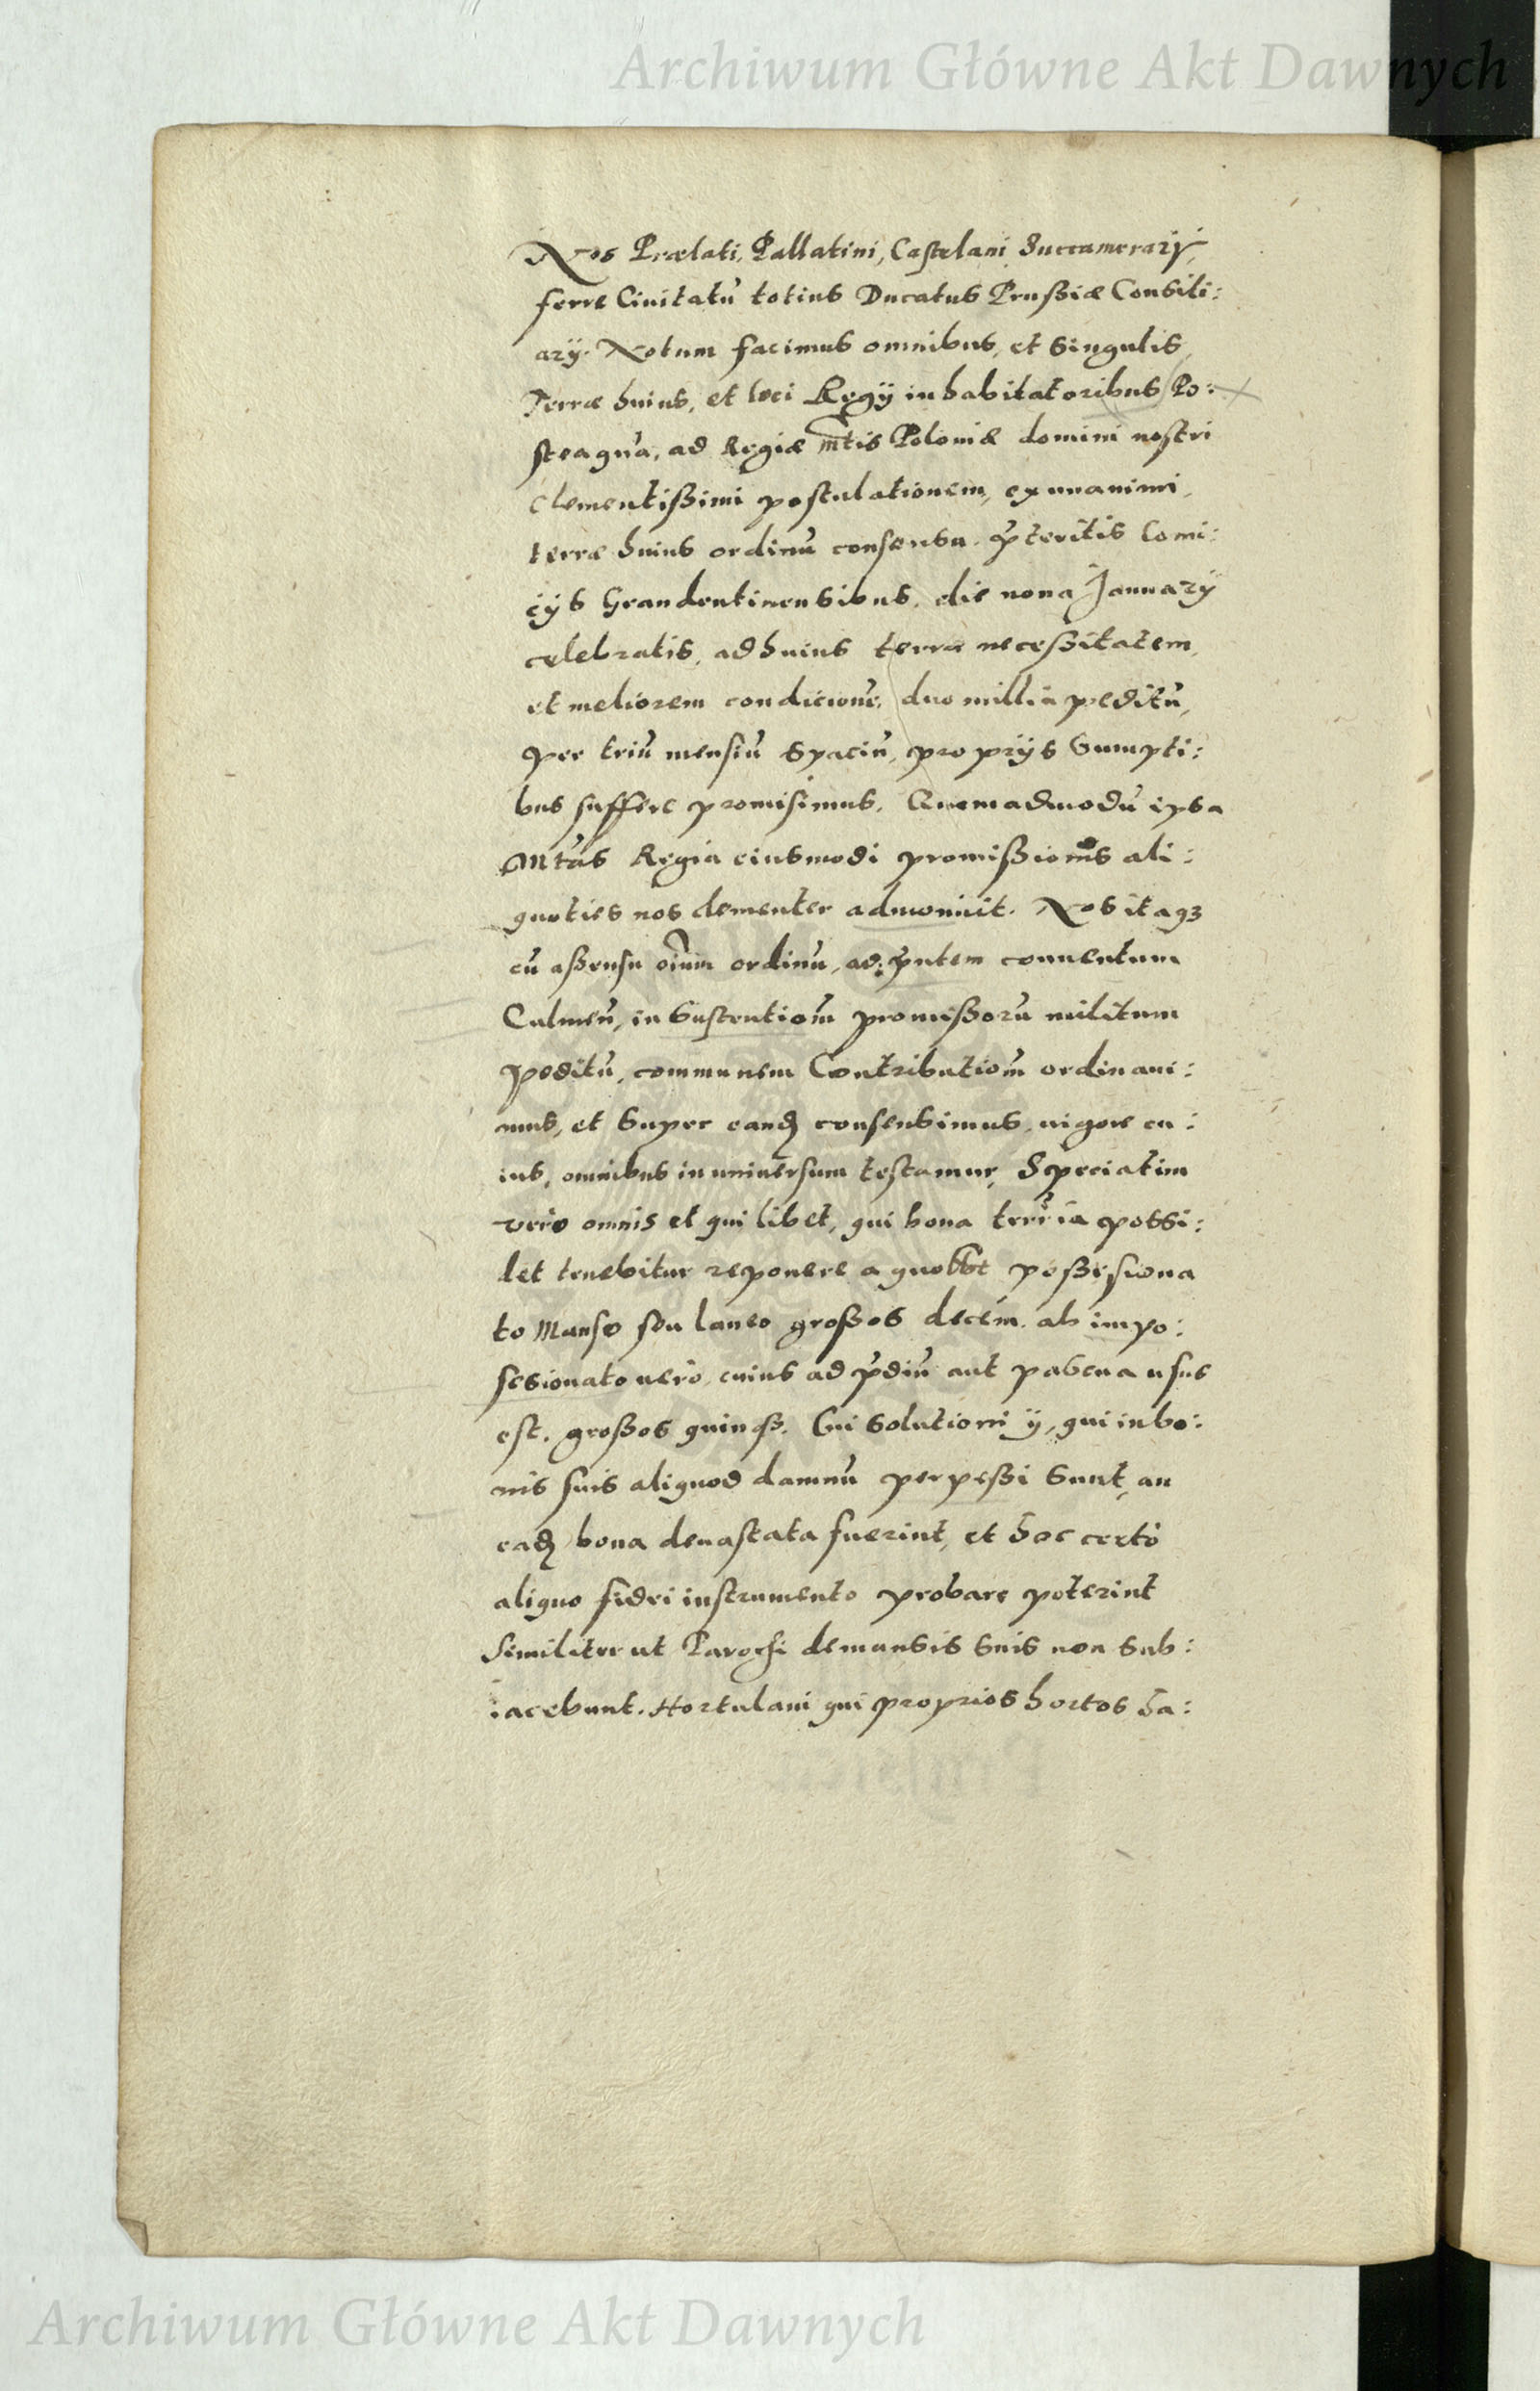 Archiwum Główne Akt Dawnych
Nos Prælati, Pallatini, Castelani Succamerarÿ,
ferre Ciuitatũ totius Ducatus Prußiæ Consili:
arÿ. Notum facimus omnibus, et singulis
Terræ huius, et loci Regÿ inhabitatoribus Po:
steaquã, ad Regiæ mtis Poloniæ domini nostri
clementißimi postulationem, ex unanimi,
terræ huius ordinũ consensu. p̃teritis Comi:
cÿs Graudentinensibus, die nona Januarÿ
celebratis, ad huius terræ neceßitatem,
et meliorem condicionẽ, duo millia peditũ,
per triũ mensiũ spaciũ, proprÿs sumpti:
bus suffere promisimus. Quemadmodũ ipsa
Mtas Regia eiusmodi promißionis ali:
quoties nos clementer admoniuit. Nos itaqꝫ
cũ aßensu oĩum ordinũ, ad p̃ntem conuentum
Culmeñ, in sustentiom̃ promißorũ militum
peditũ, communem Contributiom̃ ordinaui:
mus, et super eandꝫ consensimus, uigore cu:
ius, omnibus in uniuersum testamur, Speciatim
vero omnis et qui libet, qui bona terr̃ia possi:
det tenebitur reponere a quolbt poßesiona
to Manso seu laneo großos decem. ab impo:
sesionato uerò, cuius ad p̃diũ aut pabula usus
est. großos quinqß. Cui solutioni ÿ, qui in bo:
nis suis aliquod damnũ perpeßi sunt, an
eadꝫ bona deuastata fuerint, et hoc certò
aliquo fidei instrumento probare poterint
Similiter ut Parochi demansis suis non sub:
iacebunt. Hortulani qui proprios hortos ha:
Archiwum Główne Akt Dawnych